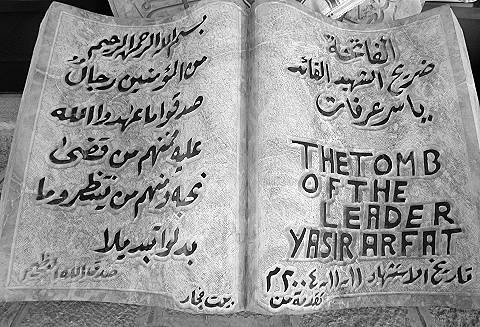 الفاتحة
ضريح الشهيد القائد
ياسر عرفات
THE TOMB
OF THE
LEADER
YASIR ARFAT
تاريخ الاستشهاد ١١-١١-٢٠٠٤م
تقدمة من
بسم الله الرحمن الرحيم
من المؤمنين رجال
صدقوا ما عهدوا الله
عليه فمنهم من قضىٰ
نحبه ومنهم من ينتظر وما
بدلوا تبديلا
صدق الله العظيم
بيت فجار